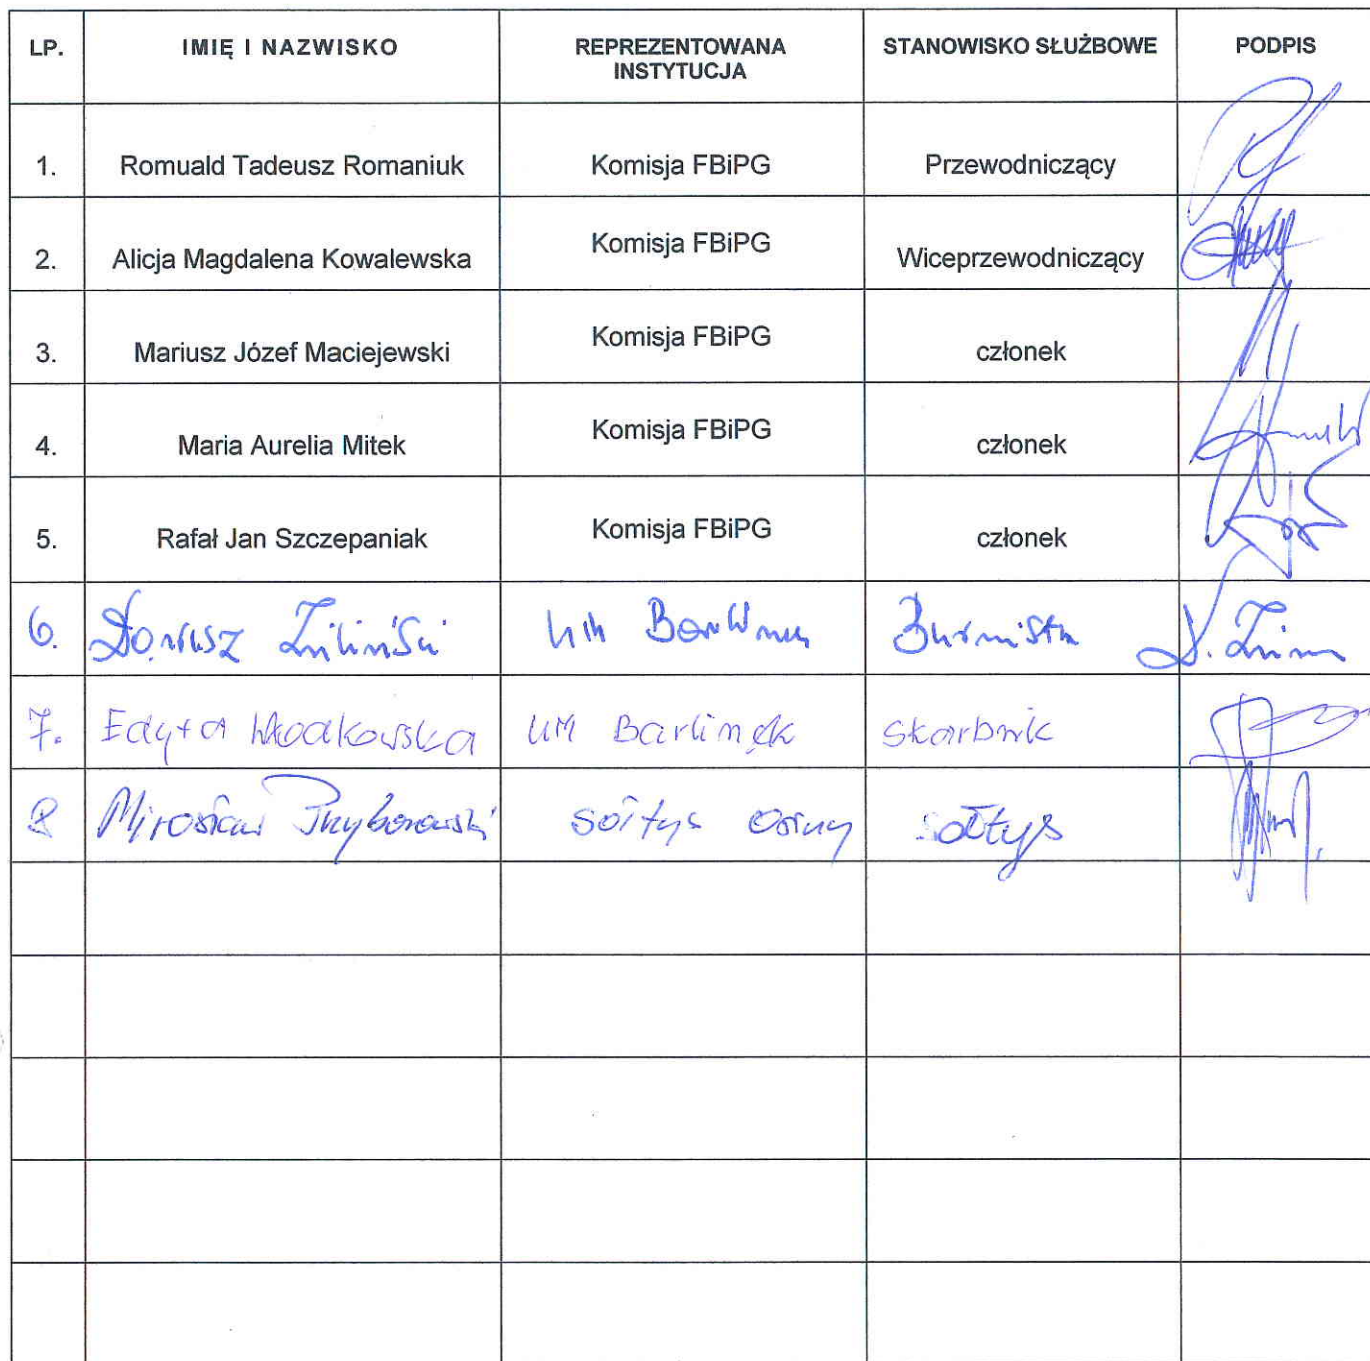 LP. IMIĘ I NAZWISKO REPREZENTOWANA INSTYTUCJA STANOWISKO SŁUŻBOWE PODPIS
1. Romuald Tadeusz Romaniuk Komisja FBiPG Przewodniczący
2. Alicja Magdalena Kowalewska Komisja FBiPG Wiceprzewodniczący
3. Mariusz Józef Maciejewski Komisja FBiPG członek
4. Maria Aurelia Mitek Komisja FBiPG członek
5. Rafał Jan Szczepaniak Komisja FBiPG członek
6. Dariusz UM Burmistrz
7. Edyta Włodkowska UM Barlinek Skarbnik
8 Mirosław Przyborowski sołtys sołtys